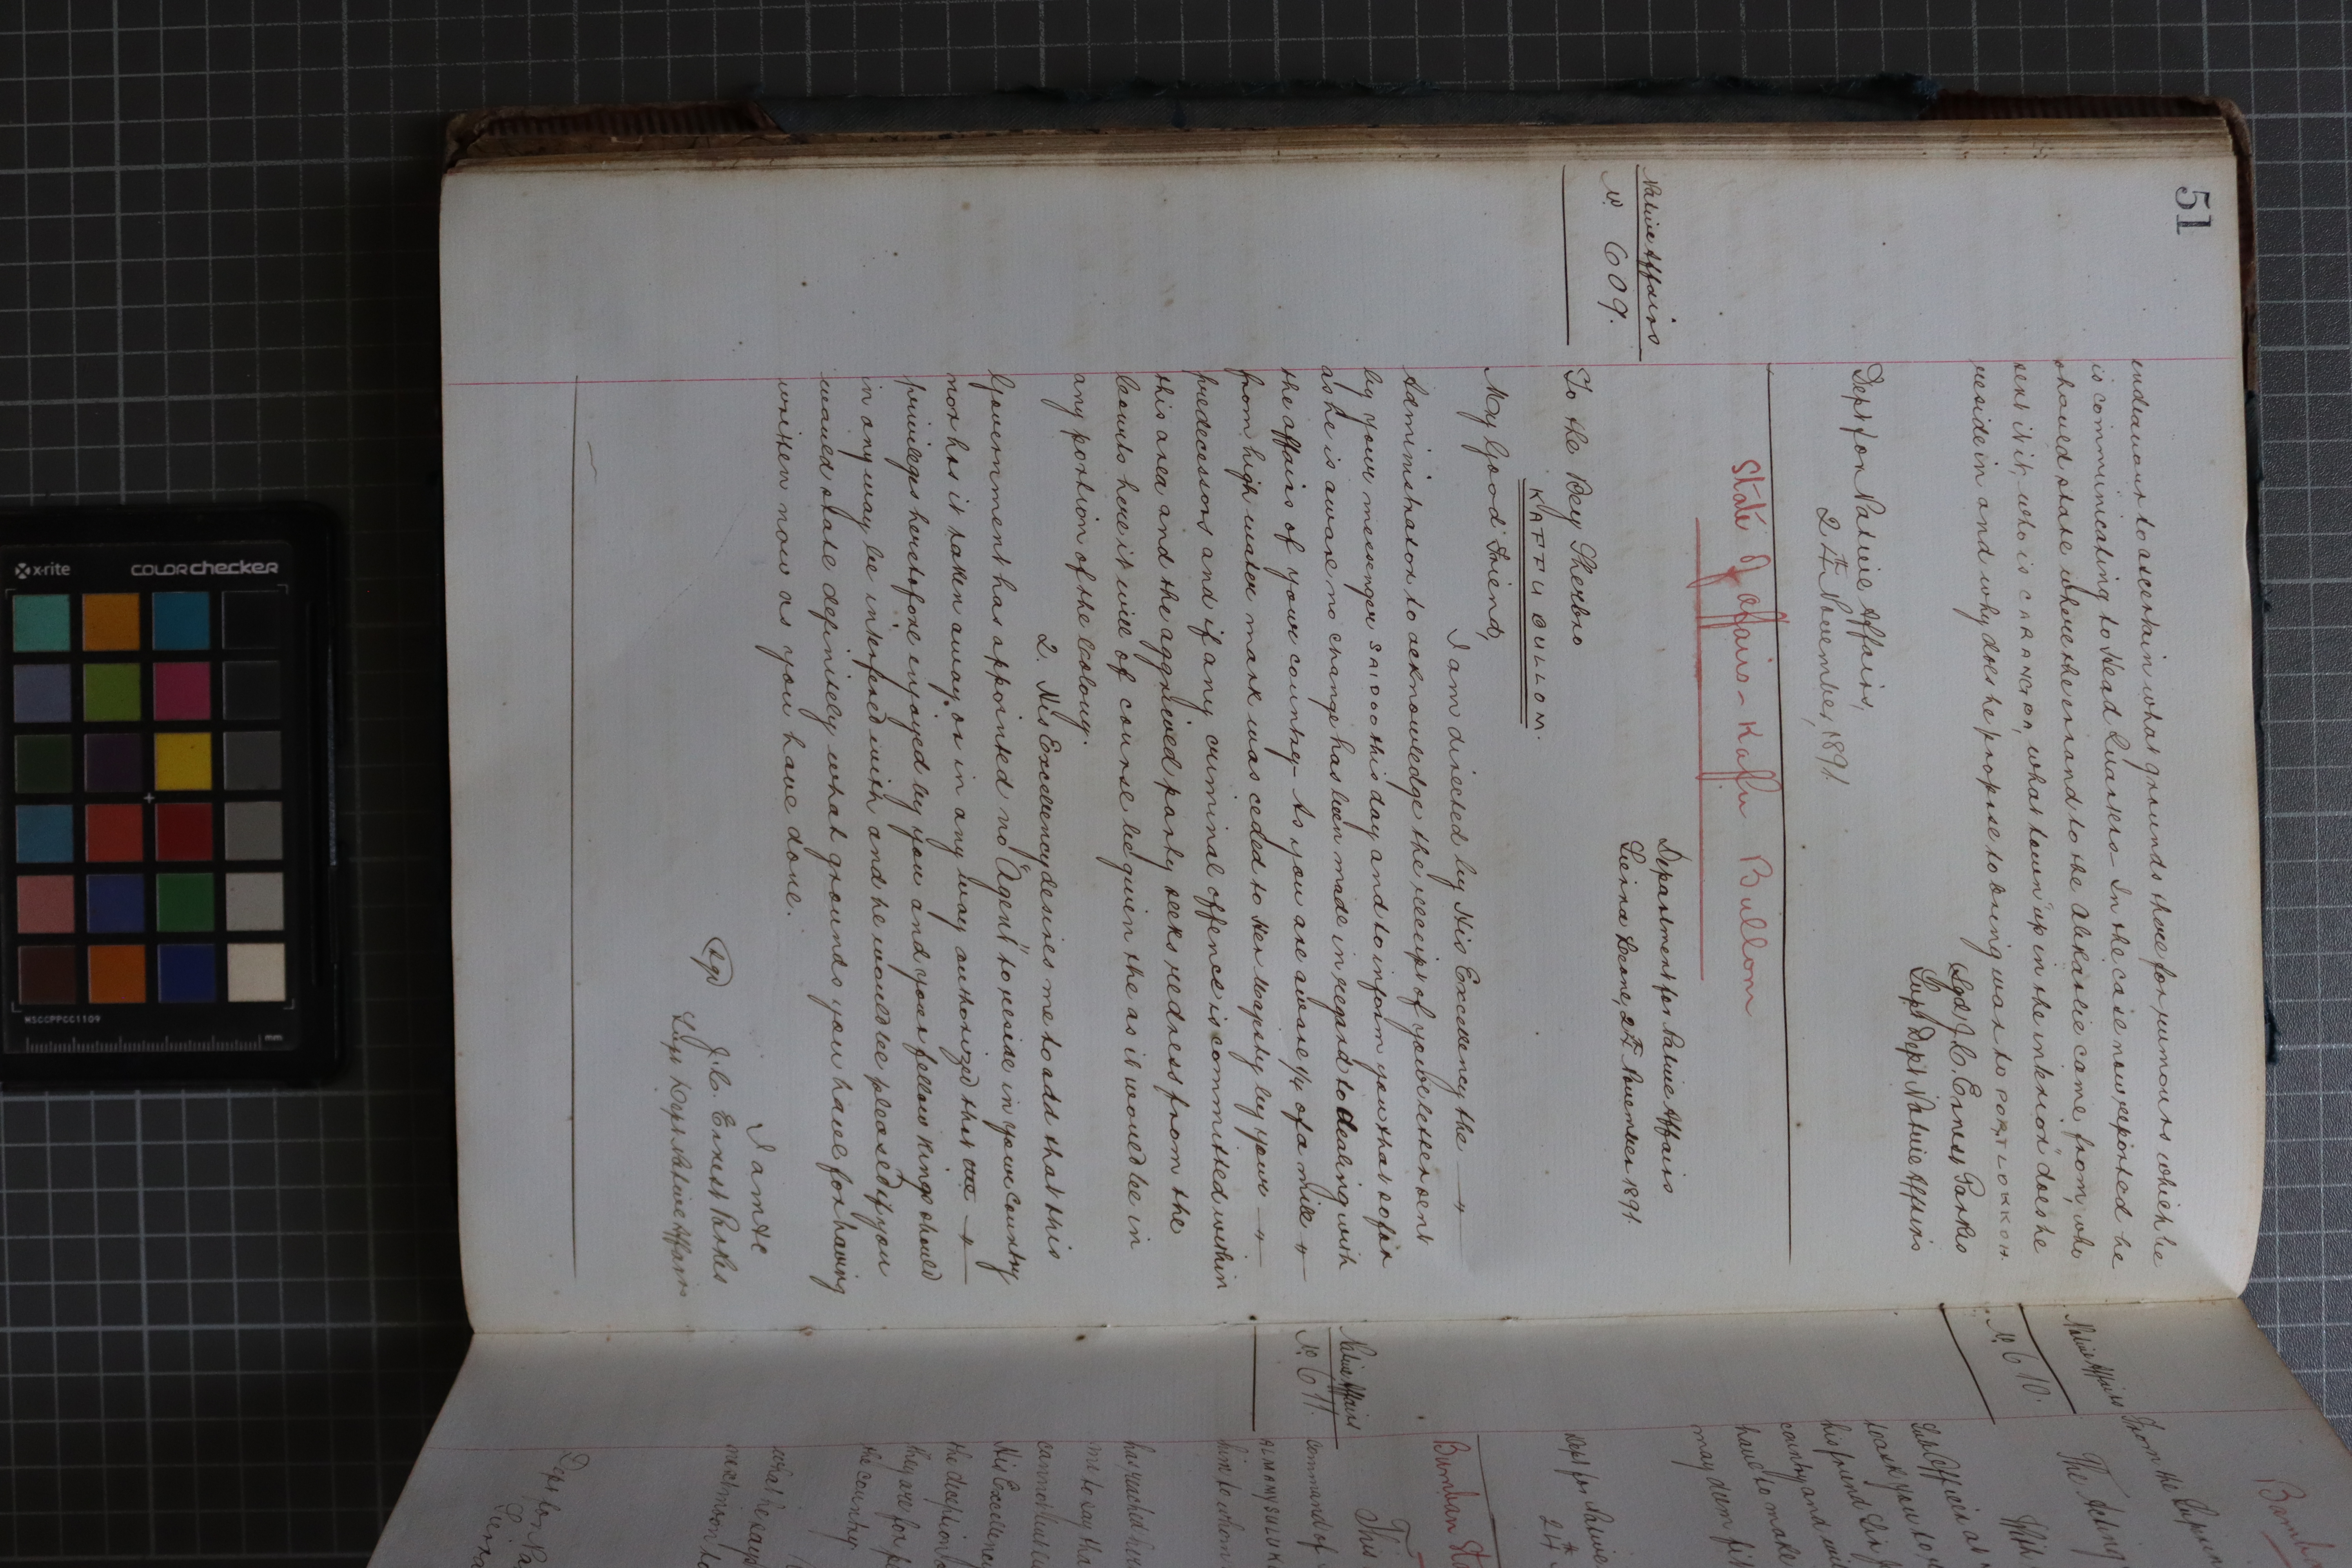 51
endeavour to ascertain what grounds there for rumours which he
is communicating to Head Quarters - In the case now reported he
should state where the errand to the Alikalie came from, who
sent it, who is CARANCBA, what town "up in the interior" does he
reside in and why does he propose to bring war to PORT LOKKOH.
Sgd/ J.C. Ernest Parkes
Supt Dept Native Affairs
Dept for Native Affairs,
24th November, 1891.
State of affairs - Kaffu Bullom
Native Affairs
No. 609.
Department for Native Affairs
Sierra Leone, 24th November 1891.
To the Bey Sherbro
KAFFU BULLOM.
My Good Friend,
I am directed by His Excellency the
Administrator to acknowledge the receipt of your letter sent
by your messenger SAIDOO this day and to inform you that so far
as he is aware no change has been made in regard to dealing with
the affairs of your country - As you are aware 1/4 of a mile
from high water mark was ceded to Her Majesty by your
predecessors and if any criminal offence is committed within
this area and the aggrieved party seeks redress from the
Courts here it will of course be given the as it would be in
any portion of the Colony.
2. His Excellency desires me to add that this
Government has appointed no "Agent" to reside in your country
nor has it taken away or in any way authorized that
privileges heretofore enjoyed by you and your fellow Kings should
in any way be interfered with and he would be pleased if you
would state definitely what grounds you have for having
written now as you have done.
I am &c
(Sgd) J.C. Ernest Parkes
Supt Dept Native Affairs
Native Affairs
No. 610.
From the
The Acting
Sub Officer at
to ask you to
his friend
country and
have to make
may deem fit
Dept for Native
24th
Bumban
Native Affairs
No. 611.
This
command of
ALMAMY SULUKU
him to whom
has reached here
me to say that
cannot
His Excellency
the deception
they are for
the country
what he says
next month
Dept for Na
Sierra
x-rite
COLORchecker
MSCCPPCC1109
mm